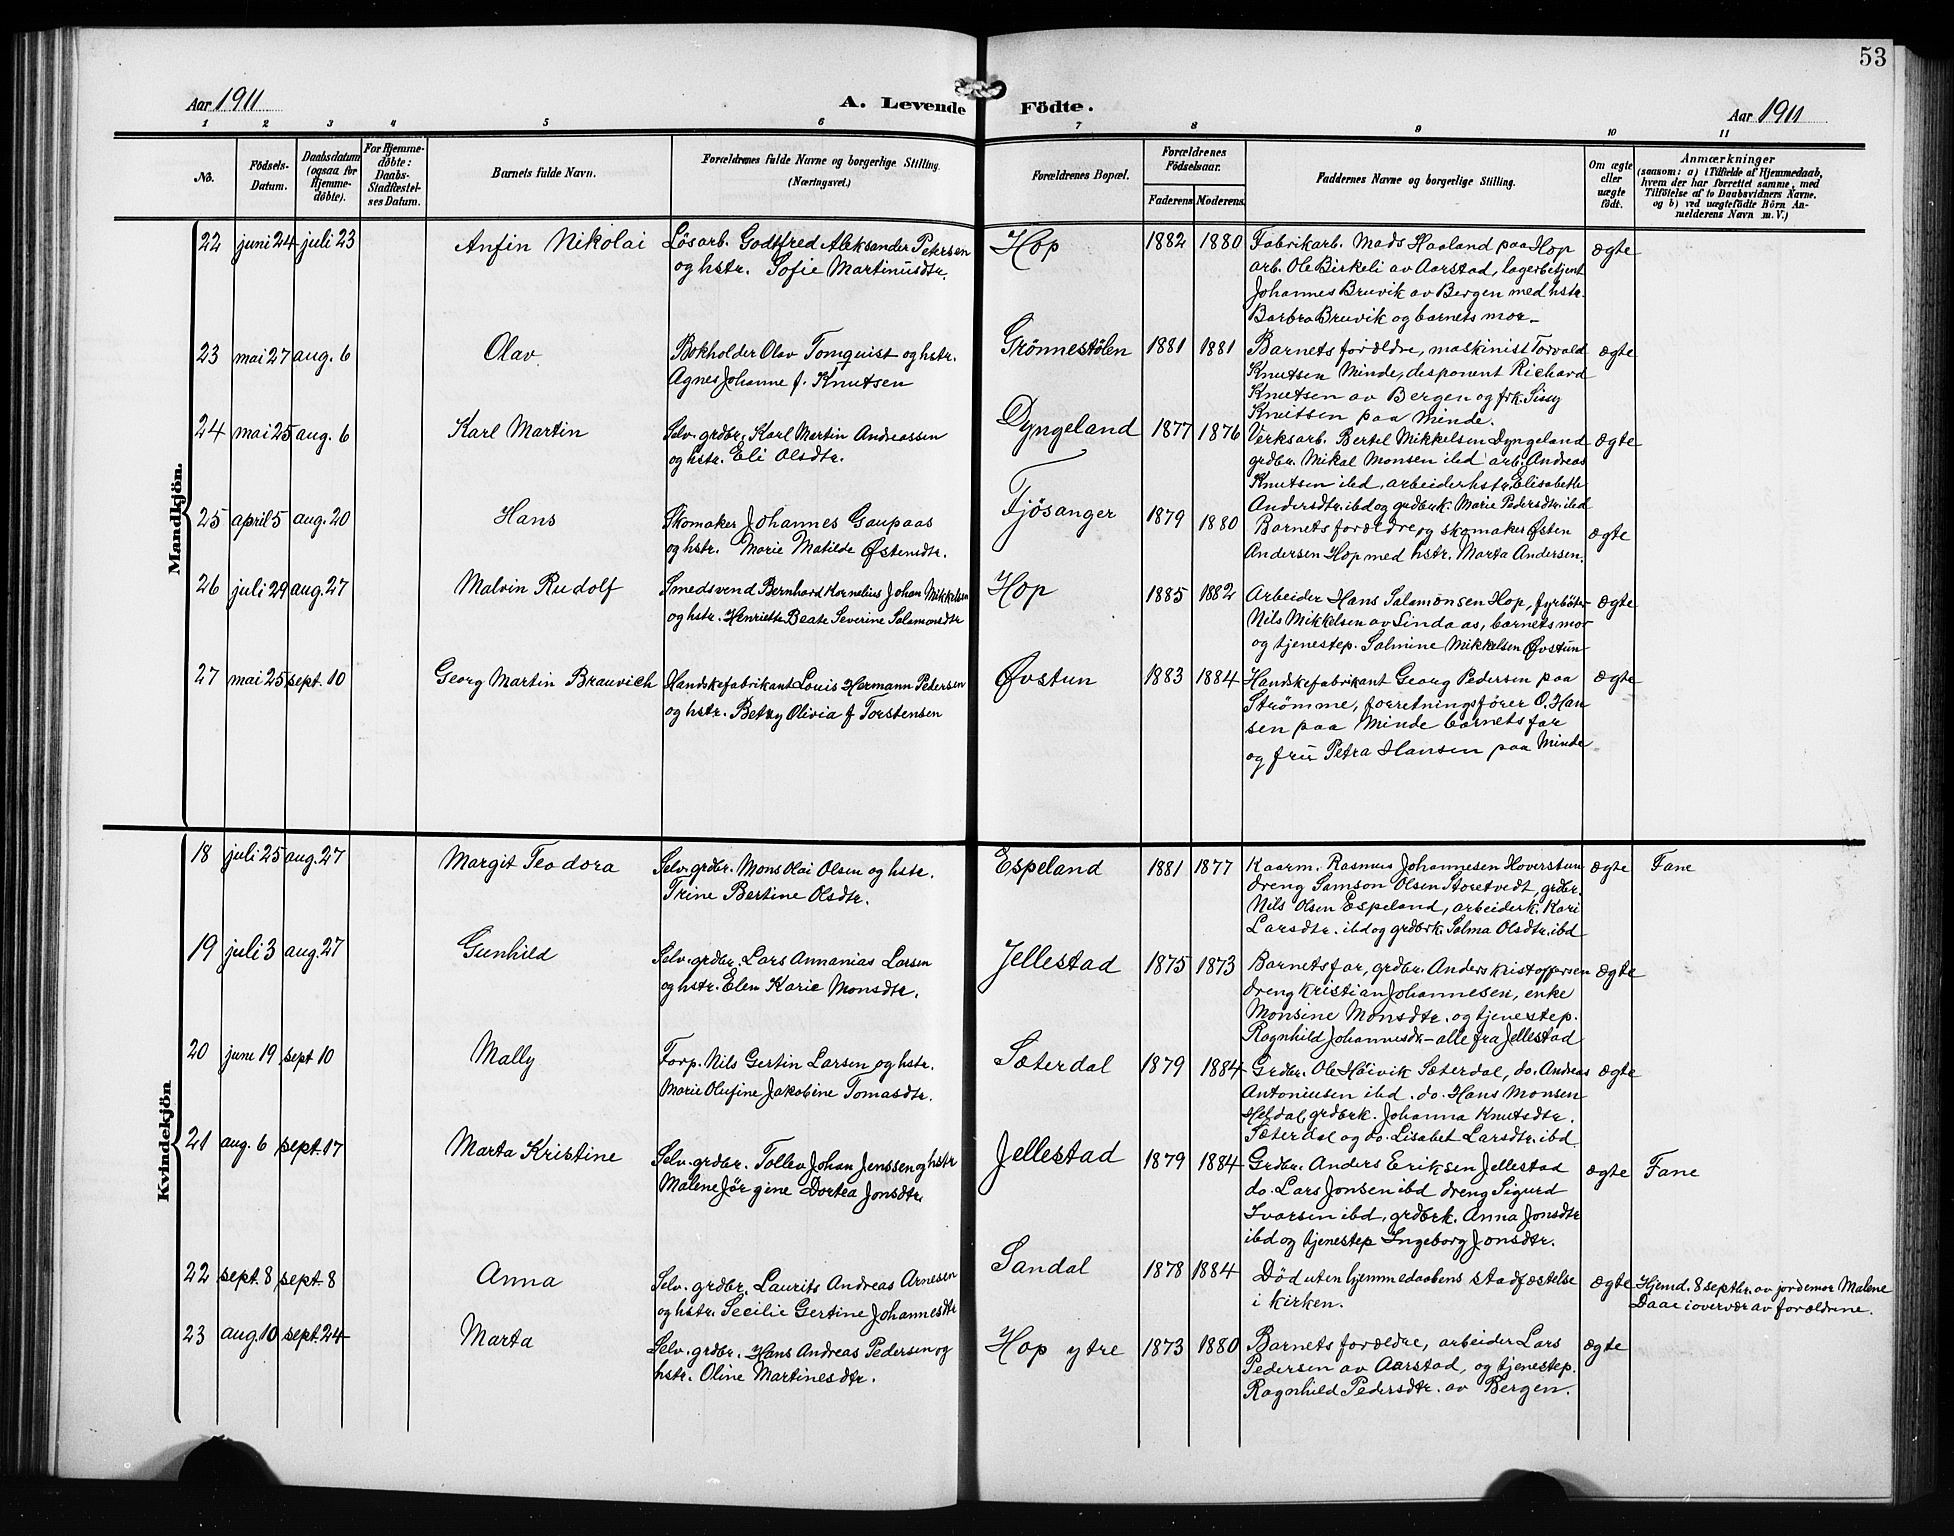 53
Aar 1911
A. Levende Födte.
Aar 1911
1 2 3 4 5 6 7 8 9 10 11
No.
Födsels-
Datum.
Daabsdatum
(ogsaa for
Hjemme-
döbte).
For Hjemme-
döbte:
Daabs-
Stadfæstel-
ses Datum.
Barnets fulde Navn.
Forældrenes fulde Navne og borgerlige Stilling.
(Næringsvei.)
Forældrenes Bopæl.
Forældrenes
Födselsaar.
Faderens Moderens
Faddernes Navne og borgerlige Stilling.
Om ægte
eller
uægte
født.
Anmærkninger
(saasom: a) i Tilfælde af Hjemmedaab,
hvem der har forrettet samme, med
Tilföielse af to Daabsvidners Navne,
og b) ved uægtefödte Börn An-
melderens Navn m. V.)
Mandkjön.
22 juni 24 juli 23 Anfin Nikolai
Løsarb. Godtfred Aleksander Petersen
og hstr. Sofie Martinusdtr.
Hop 1882 1880
Fabrikarb. Mads Haaland paa Hop
arb. Ole Birkeli av Aarstad, lagerbetjent
Johannes Bruvik av Bergen med hstr.
Barbra Bruvik og barnets mor
ægte
23 mai 27 aug. 6 Olav
Bokholder Olav Tornquist og hstr.
Agnes Johanne f. Knutsen
Grönnestølen 1881 1881
Barnets forældre, maskinist Torvald
Knutsen Minde, desponent Richard
Knutsen av Bergen og frk. Sissy
Knutsen paa Minde.
ægte
24 mai 25 aug. 6 Karl Martin
Selv. grdbr. Karl Martin Andreassen
og hstr. Eli Olsdtr.
Dyngeland 1877 1876
Verksarb. Bertel Mikkelsen Dyngeland
grdbr. Mikal Monsen ibd arb. Andreas
Knutsen ibd, arbeiderhstr. Elisabeth
Andersdtr. ibd og grdbrk. Marie Pedersdtr. ibd
ægte
25 april 5 aug. 20 Hans
Skomaker Johannes Gaupaas
og hstr. Marie Matilde Østensdtr.
Fjösanger 1879 1880
Barnets forældre og skomaker Østen
Andersen Hop med hstr. Marta Andersen.
ægte
26 juli 29 aug. 27 Malvin Rudolf
Smedsvend Bernhard Kornelius Johan Mikkelsen
og hstr. Henriette Beate Severine Salamonsdtr
Hop 1885 1882
Arbeider Hans Salamonsen Hop, fyrbøter
Nils Mikkelsen av Lindaas, barnets mor
og tjenestep. Salmine Mikkelsen Øvstun
ægte
27 mai 25 sept. 10 Georg Martin Brauvich
Handskefabrikant Louis Hermann Pedersen
og hstr. Betzy Olivia f Torstensen
Øvstun 1883 1884
Handskefabrikant Georg Pedersen paa
Strömme, forretningsfører O. Han
sen paa Minde barnets far
og fru Petra Hansen paa Minde
ægte
Kvindekjön
18 juli 25 aug. 27 Margit Teodora
Selv. grdbr. Mons Olai Olsen og hstr.
Trine Bertine Olsdtr.
Espeland 1881 1877
Kaarm. Rasmus Johannesen Hoverstun
dreng Samson Olsen Storetvedt, grdbr.
Nils Olsen Espeland, arbeiderk. Kari
Larsdtr. ibd og grdbrk Salma Olsdtr. ibd
ægte Fane
19 juli 3 aug. 27 Gunhild
Selv. grdbr. Lars Annanias Larsen
og hstr. Elen Karie Monsdtr.
Jellestad 1875 1873
Barnets far, grdbr. Anders Kristoffersen
dreng Kristian Johannesen, enke
Monsine Monsdtr. og tjenestep.
Ragnhild Johannesdtr - alle fra Jellestad
ægte
20 june 19 sept 10 Mally
Forp. Nils Gertin Larsen og hstr.
Marie Olufine Jakobine Tomasdtr.
Sæterdal 1879 1884
Grdbr. Ole Høivik Sæterdal, do. Andreas
Antoniusen ibd. do. Hans Monsen
Heldal, grdbrk. Johanna Knutsdtr.
Sæterdal og do. Lisabet Larsdtr. ibd
ægte
21 aug. 6 sept. 17 Marta Kristine
Selv. grdbr. Tollev Johan Jenssen og hstr
Malene Jørgine Dortea Jonsdtr.
Jellestad 1879 1884
Grdbr. Anders Eriksen Jellestad
do. Lars Jonsen ibd dreng Sigurd
Ivarsen ibd, grdbrk. Anna Jonsdtr
ibd og tjenestep Ingeborg Jonsdtr.
ægte Fane
22 sept. 8 sept. 8 Anna
Selv. grdbr. Laurits Andreas Arnesen
og hstr. Secilie Gertine Johannesdtr
Sandal 1878 1884
Död uten hjemmedaabens stadfæstelse
i kirken.
ægte
Hjemd. 8 septbr. av jordemor Malene
Daae i overvær av forældrene.
23 aug. 10 sept. 24 Marta
Selv. grdbr. Hans Andreas Pedersen og
hstr. Oline Martinesdtr.
Hop ytre 1873 1880
Barnets forældre, arbeider Lars
Pedersen av Aarstad, og tjenestep.
Ragnhild Pedersdtr. av Bergen.
ægte